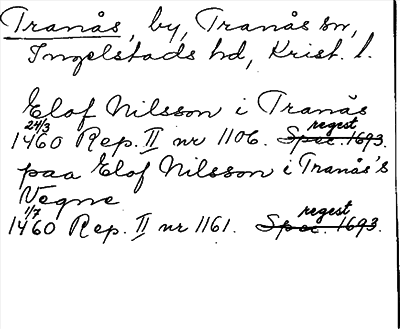 Tranås, by, Tranås sn,
Ingelstads hd, Krist. l.
Elof Nilsson i Tranås
24/3
1460 Rep. II nr 1106. Spec. 1693. regest
paa Elof Nilsson i Tranås's
Vegne
1/7
1460 Rep. II nr 1161. Spec. 1693. regest